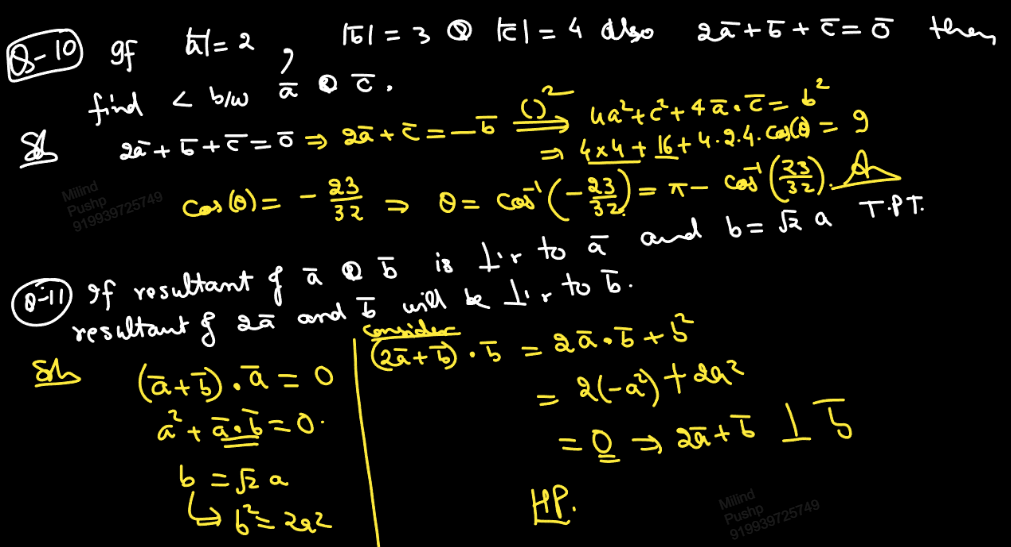 Q-10 If |a̅| = 2 , |b̅| = 3 & |c̅| = 4 also 2a̅ + b̅ + c̅ = 0̅ then,
find < b/w a̅ & c̅.
Sol 2a̅ + b̅ + c̅ = 0̅ ⇒ 2a̅ + c̅ = −b̅ ⟹ ( )² 4a² + c² + 4a̅·c̅ = b²
⇒ 4×4 + 16 + 4·2·4·cos(θ) = 9
cos(θ) = −23/32 ⇒ θ = cos⁻¹(−23/32) = π − cos⁻¹(23/32). Ans
Milind
Pushp
919939725749
Q-11 If resultant of a̅ & b̅ is ⊥r to a̅ and b = √2 a T.P.T.
resultant of 2a̅ and b̅ will be ⊥r to b̅.
Sol (a̅ + b̅)·a̅ = 0
a² + a̅·b̅ = 0.
b = √2 a
↳ b² = 2a²
consider
(2a̅ + b̅)·b̅ = 2a̅·b̅ + b²
= 2(−a²) + 2a²
= 0 ⇒ 2a̅ + b̅ ⊥ b̅
HP.
Milind
Pushp
919939725749